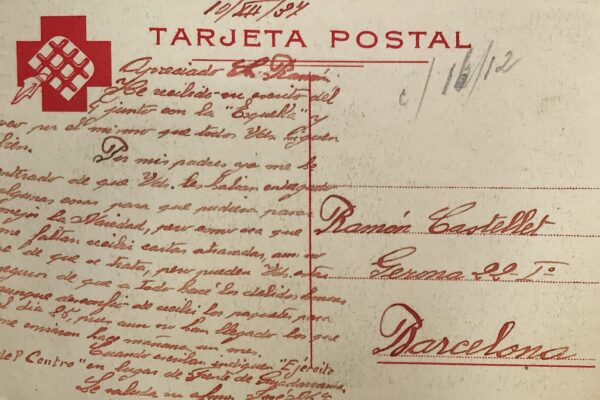 10/XII/37
TARJETA POSTAL
c/ 16/12
Apreciado Sr. Ramón
He recibido su escrito del
5 junto con la "Esquella" y
veo por el mismo que todos Vds. siguen
bien.
Por mis padres ya me he
enterado de que Vds. les habían entregado
algunas cosas para que pudiera pasar
mejor la Navidad, pero como sea que
me faltan recibir cartas atrasadas, aun no
se de que se trata, pero pueden Vds. estar
seguros de que a todo haré los debidos honores
aunque desconfío de recibir los paquetes para
el día 25, pues aun no han llegado los que
me enviaron hace mañana un mes.
Cuando escriban indiquen "Ejército
del Centro" en lugar de Frente de Guadarrama.
Le saluda su afmo. José
Ramón Castellet
Gerona 22 1º
Barcelona